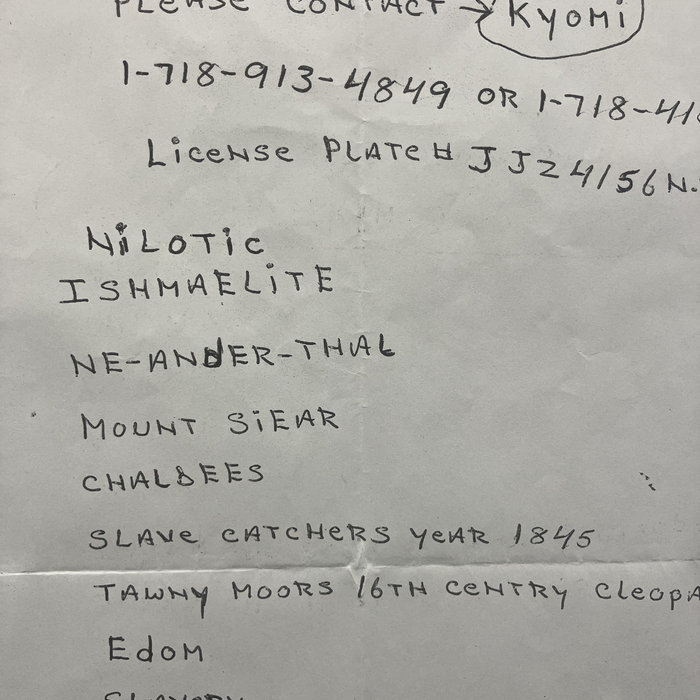 PLEASE CONTACT → KYOMI
1-718-913-4849 OR 1-718-41
LICENSE PLATE # JJZ4156 N.
NILOTIC
ISHMAELITE
NE-ANDER-THAL
MOUNT SIEAR
CHALDEES
SLAVE CATCHERS YEAR 1845
TAWNY MOORS 16TH CENTRY CLEOPA
EDOM